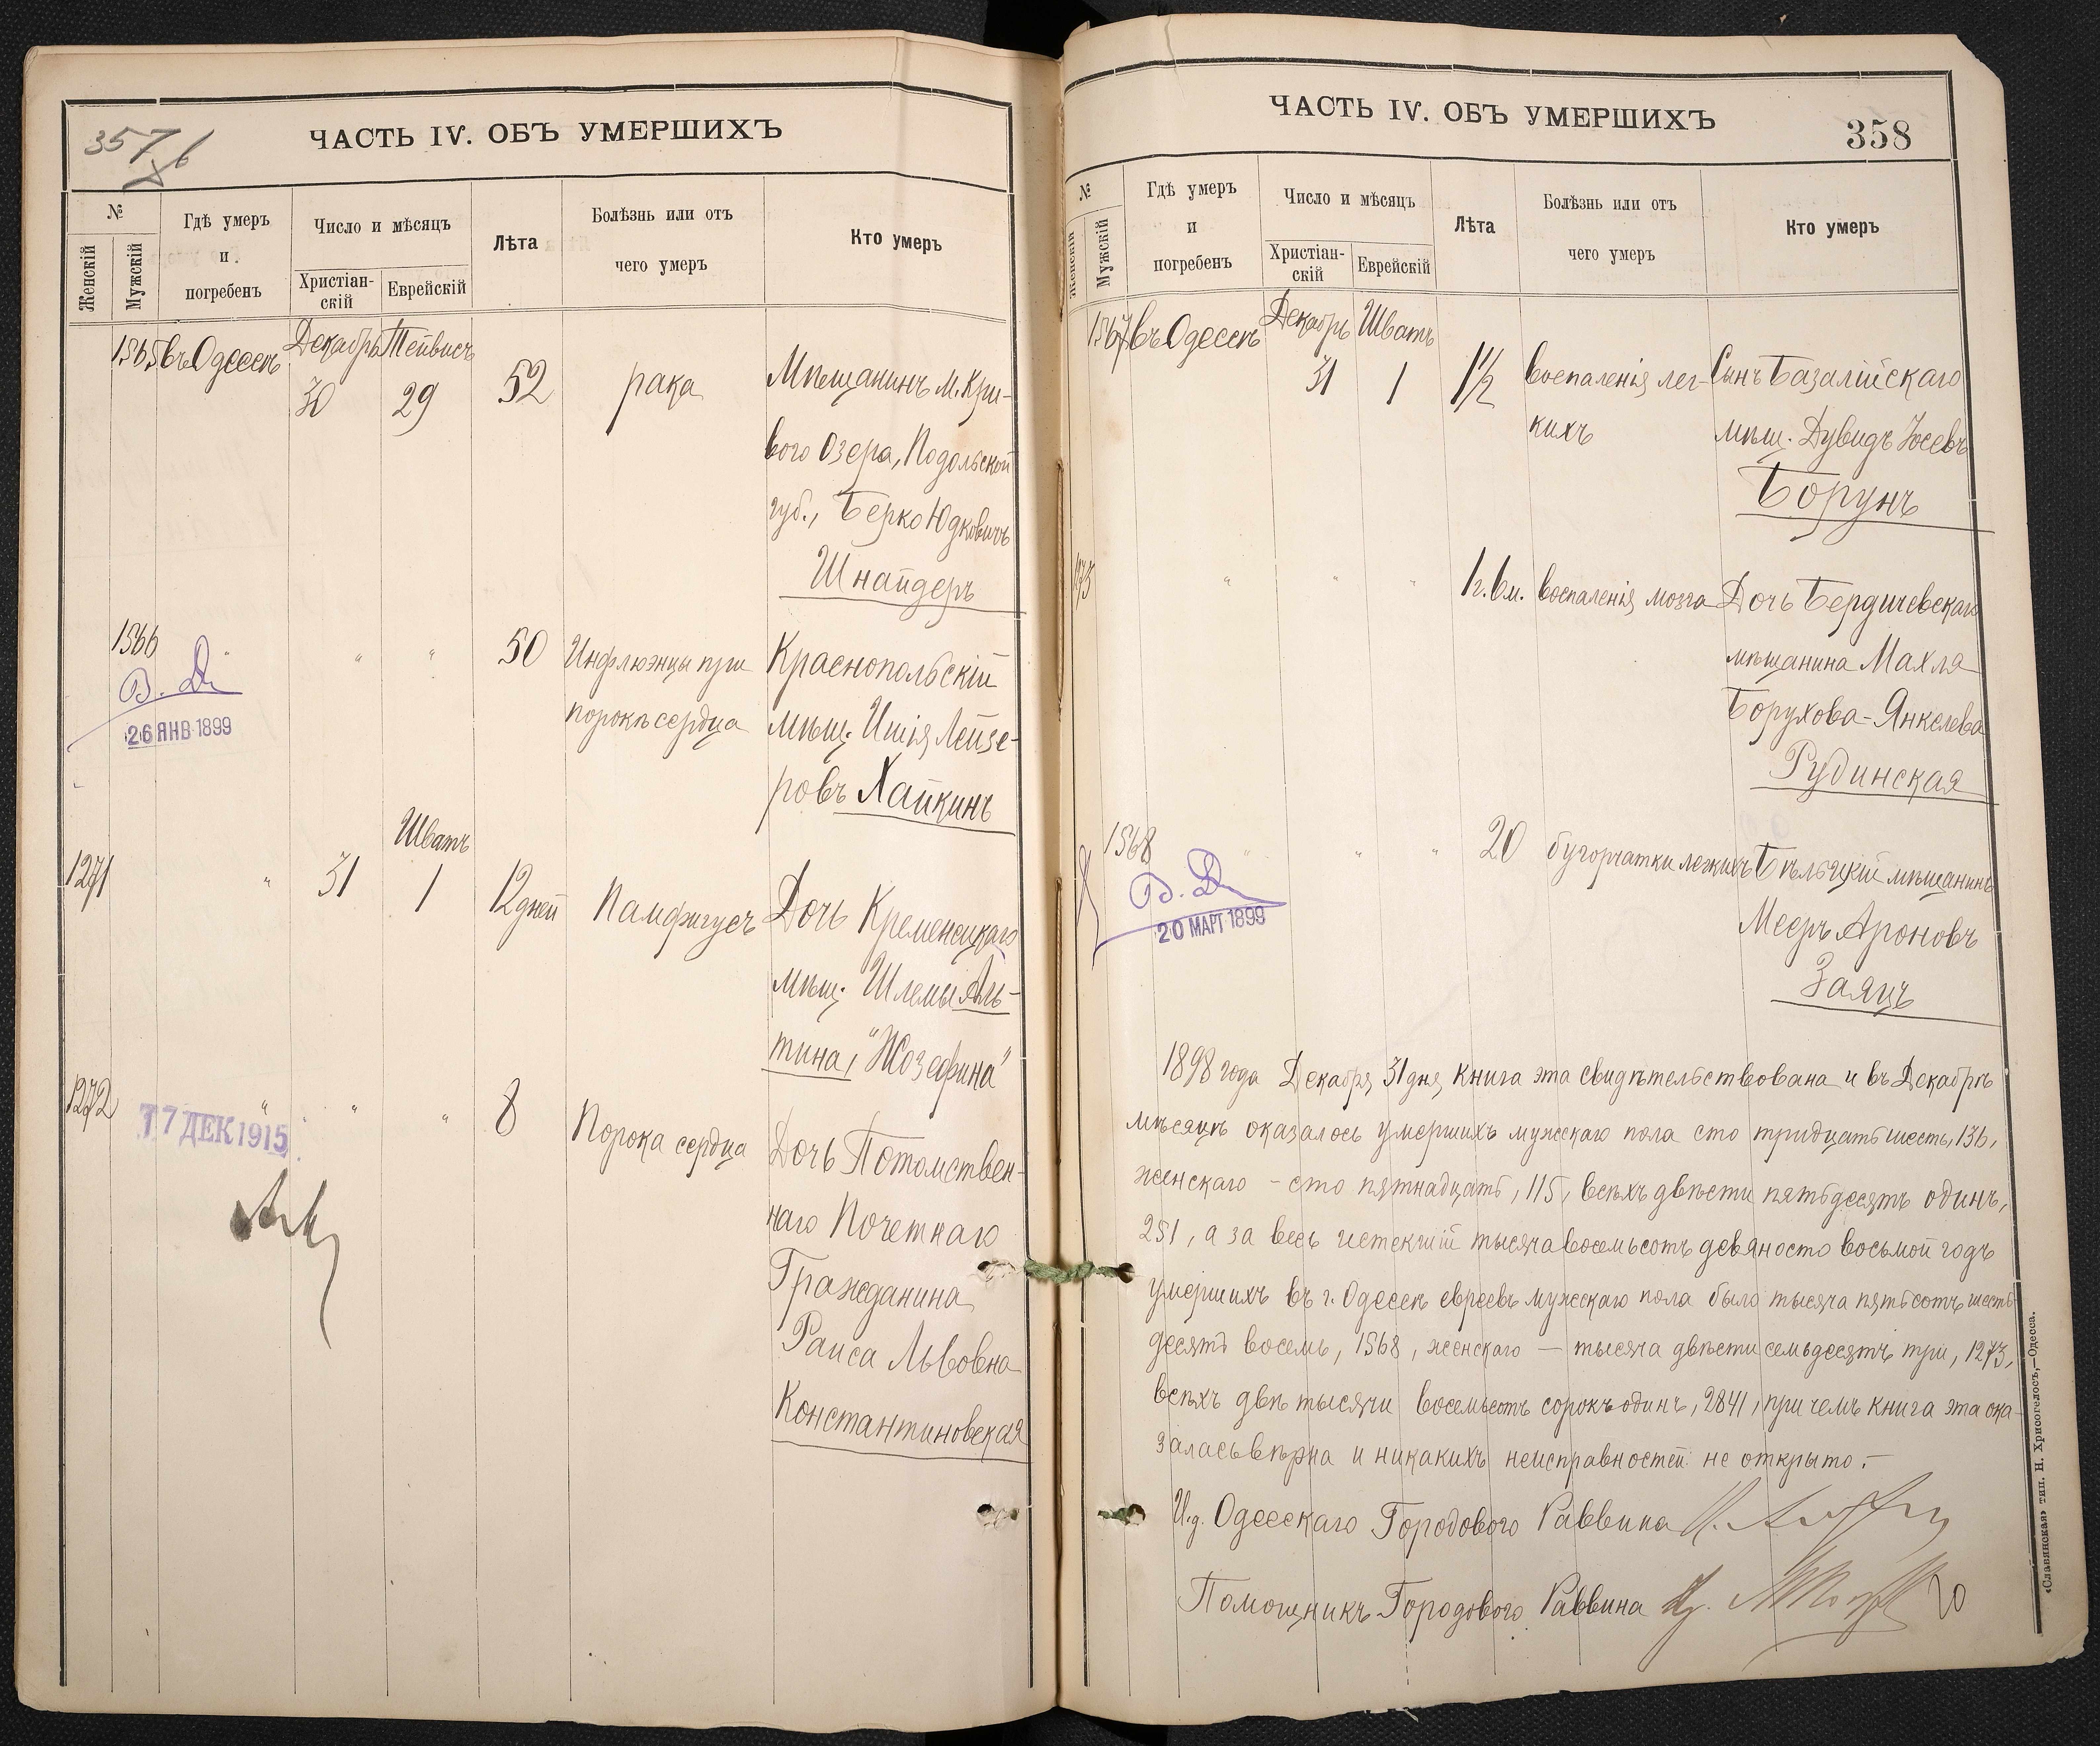 357 б
ЧАСТЬ IV. ОБЪ УМЕРШИХЪ
№
Женскій
Мужскій
Гдѣ умеръ
и
погребенъ
Число и мѣсяцъ
Христіан-
скій
Еврейскій
Лѣта
Болѣзнь или отъ
чего умеръ
Кто умеръ
1565 въ Одессѣ Декабрь 30 Тейвисъ 29 52 рака Мѣщанинъ м. Кри-
вого Озера, Подольской
губ., Берко Юдковичъ
Шнайдеръ
1566 " " " 50 Инфлюэнцы при Краснопольскій
порокѣ сердца мѣщ. Ишія Лейзе-
ровъ Хайкинъ
26 ЯНВ 1899
Шватъ
1271 " 31 1 12 дней Памфигусъ Дочь Кременецкаго
мѣщ. Шлемы Аль-
тина, "Жозефина"
1272 " " " 8 Порока сердца Дочь Потомствен-
17 ДЕК 1915
наго Почетнаго
Гражданина
Раиса Львовна
Константиновская
ЧАСТЬ IV. ОБЪ УМЕРШИХЪ
358
№
Женскій
Мужскій
Гдѣ умеръ
и
погребенъ
Число и мѣсяцъ
Христіан-
скій
Еврейскій
Лѣта
Болѣзнь или отъ
чего умеръ
Кто умеръ
1567 въ Одессѣ Декабрь 31 Шватъ 1 1½ воспаленія лег- Сынъ Базалійскаго
кихъ мѣщ. Дувидъ Іосевъ
Борунъ
1273 " " " 1 г. 6 м. воспаленія мозга Дочь Бердичевскаго
мѣщанина Махля
Борухова-Янкелева
Рудинская
1568 " " " 20 бугорчатки легкихъ Бѣльцкій мѣщанинъ
Мееръ Ароновъ
Заяцъ
20 МАРТ 1899
1898 года Декабря 31 дня книга эта свидѣтельствована и въ Декабрѣ
мѣсяцѣ оказалось умершихъ мужскаго пола сто тридцать шесть, 136,
женскаго – сто пятнадцать, 115, всѣхъ двѣсти пятьдесятъ одинъ,
251, а за весь истекшій тысяча восемьсотъ девяносто восьмой годъ
умершихъ въ г. Одессѣ евреевъ мужскаго пола было тысяча пятьсотъ шесть-
десятъ восемь, 1568, женскаго – тысяча двѣсти семьдесятъ три, 1273,
всѣхъ двѣ тысячи восемьсотъ сорокъ одинъ, 2841, при чемъ книга эта ока-
залась вѣрна и никакихъ неисправностей не открыто. –
И.д. Одесскаго Городового Раввина
Помощникъ Городового Раввина
«Славянская» тип. Н. Хрисогелосъ,—Одесса.